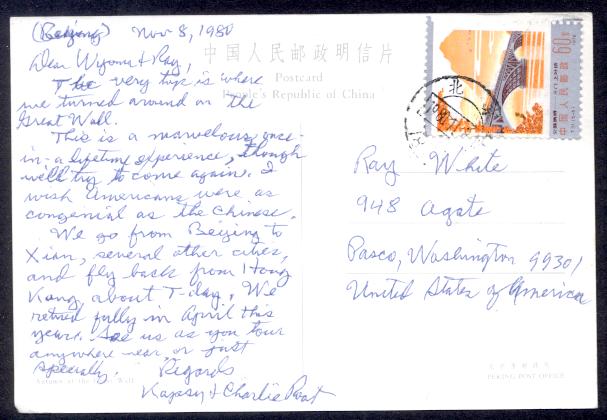 (Beijing) Nov 8, 1980
中国人民邮政明信片
Postcard
People's Republic of China
Dear Wyoma & Ray,
The very top is where
we turned around on the
Great Wall.
This is a marvelous, once-
in-a lifetime experience, though
we'll try to come again. I
wish Americans were as
congenial as the Chinese.
We go from Beijing to
Xian, several other cities,
and fly back from Hong
Kong, about T-day. We
retired fully in April this
year. See us as you tour
anywhere near, or just
specially.
Regards
& Charlie
Autumn at the Great Wall
60分
中国人民邮政
北
Ray White
948 Agate
Pasco, Washington 99301
United States of America
PEKING POST OFFICE